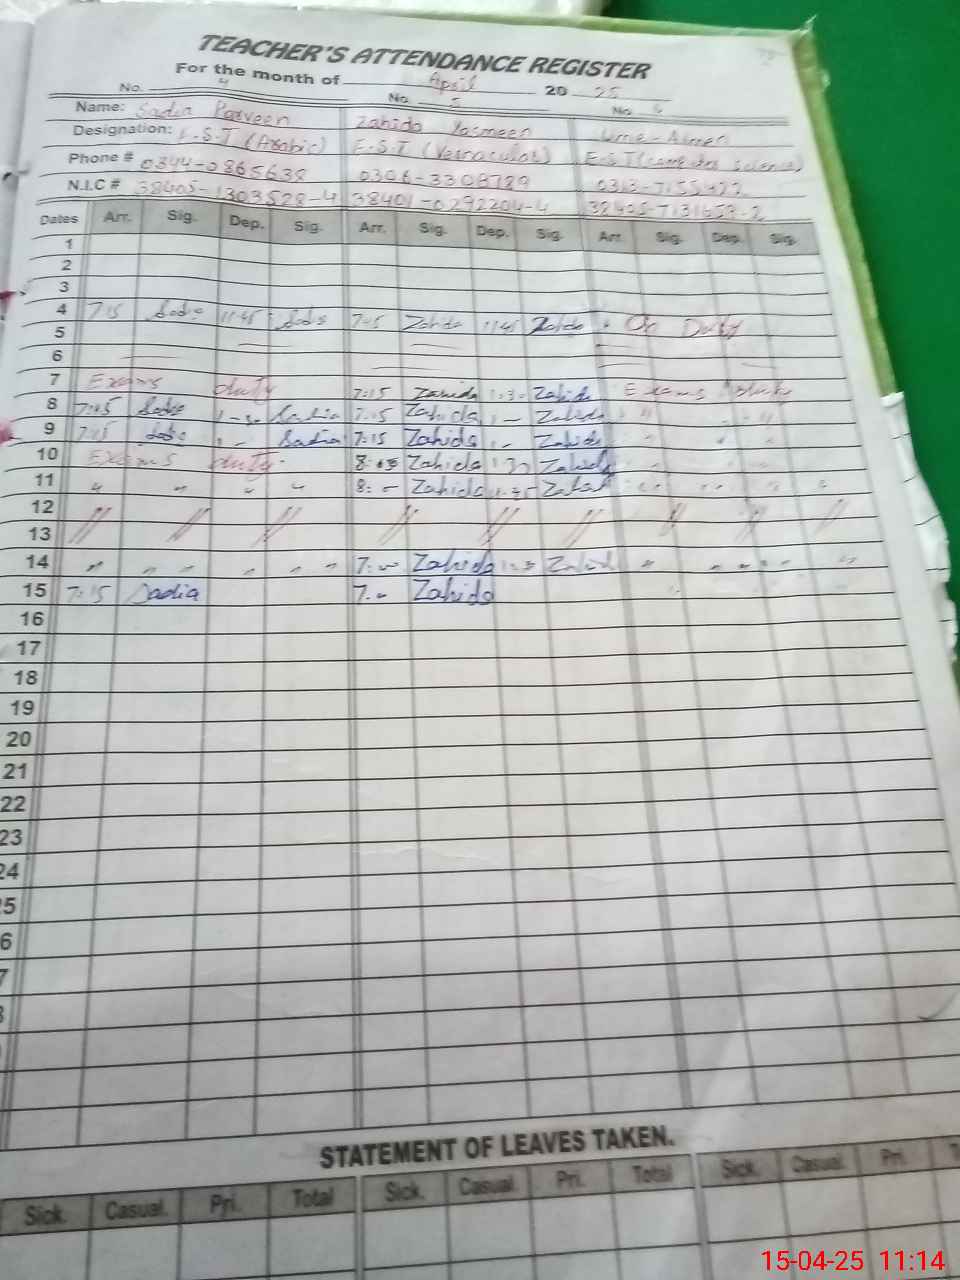 TEACHER'S ATTENDANCE REGISTER
For the month of April 20 25
No. 4 No. 5 No. 6
Name: Sadia Parveen Zahida Yasmeen
Designation: E.S.T (Arabic) E.S.T (Vernacular) E.S.T (computer science)
Phone # 0344-0865638 0306-3308789
N.I.C # 38405-1303528-4 38401-0292204-4
Dates Arr. Sig. Dep. Sig. Arr. Sig. Dep. Sig. Arr. Sig. Dep. Sig.
1
2
3
4 7:15 Sadia 11:45 Sadia 7:15 Zahida 11:45 Zahida On Duty
5
6
7 Exams duty 7:15 Zahida Zahida Exams duty
8 7:15 Sadia Sadia 7:15 Zahida Zahida " "
9 7:15 Sadia Sadia 7:15 Zahida Zahida " "
10 Exams duty Zahida Zahida
11 " " " " Zahida Zahida " " " "
12
13
14 " " " " " " Zahida Zahida
15 7:15 Sadia Zahida
16
17
18
19
20
21
22
23
24
5
6
7
STATEMENT OF LEAVES TAKEN.
Sick. Casual. Pri. Total Sick. Casual. Pri. Total Sick. Casual. Pri. T
15-04-25 11:14